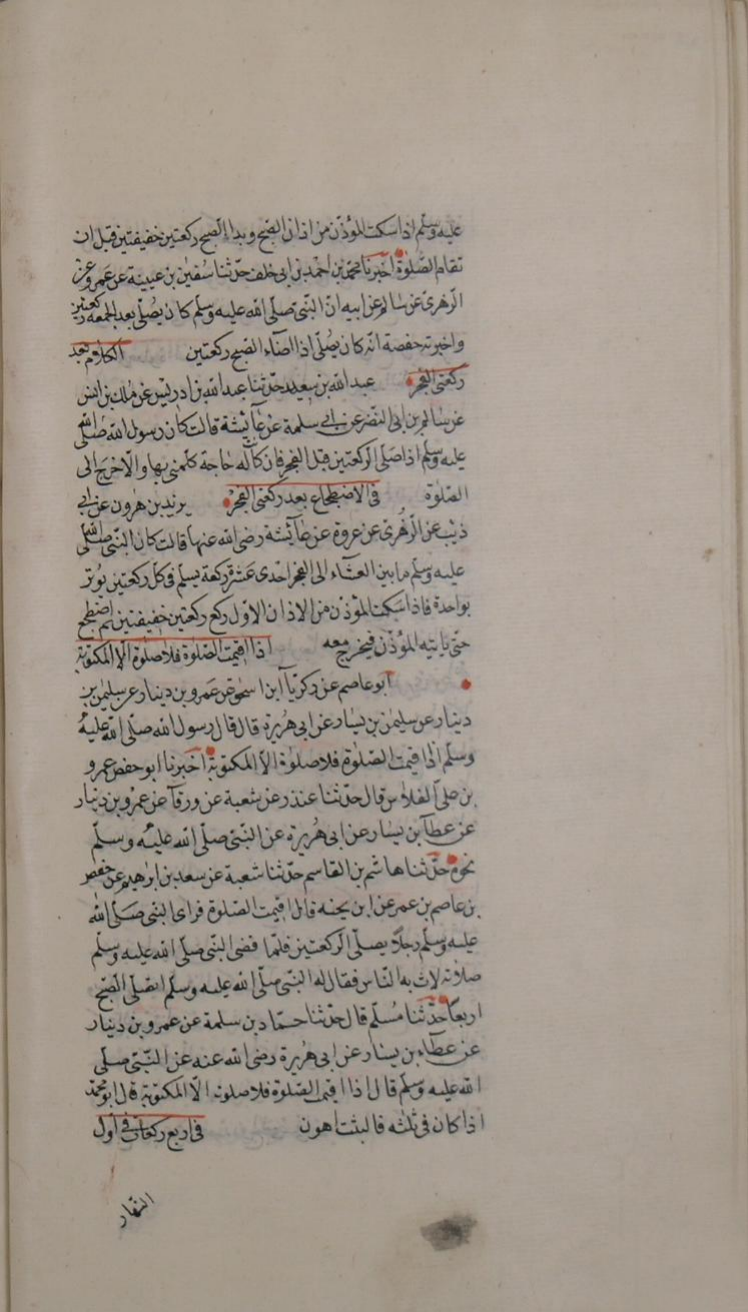 عليه وسلم اذا سكت المؤذن من اذان الصبح وبدا الصبح ركعتين خفيفتين قبل ان
تقام الصلوة اخبرنا محمد بن احمد بن ابى خلف حدثنا سفين بن عيينة عن عمرو عن
الزهرى عن سالم عن ابيه ان النبى صلى الله عليه وسلم كان يصلى بعد الجمعه ركعتين
واخبرته حفصة انه كان يصلى اذا اضاء الصبح ركعتين الكلام بعد
ركعتى الفجر عبد الله بن سعيد حدثنا عبد الله بن ادريس عن ملك بن انس
عن سالم بن ابى النضر عن ابى سلمة عن عائشة قالت كان رسول الله صلى الله
عليه وسلم اذا صلى الركعتين قبل الفجر فان كان له حاجة كلمنى بها والا خرج الى
الصلوة فى الاضطجاع بعد ركعتى الفجر يزيد بن هرون عن ابى
ذيب عن الزهرى عن عروة عن عائشة رضى الله عنها قالت كان النبى صلى الله
عليه وسلم ما بين العشاء الى الفجر احدى عشرة ركعة يسلم فى كل ركعتين يوتر
بواحدة فاذا سكت المؤذن من الاذان الاول ركع ركعتين خفيفتين ثم اضطجع
حتى ياتيه المؤذن فيخرج معه اذا اقيمت الصلوة فلا صلوة الا المكتوبة
ابو عاصم عن زكريآ ابن اسحق عن عمرو بن دينار عن سليمن بن
دينار عن سليمن بن يسار عن ابى هريرة قال قال رسول الله صلى الله عليه
وسلم اذا اقيمت الصلوة فلا صلوة الا المكتوبة اخبرنا ابو حفص عمرو
بن على الفلاس قال حدثنا غندر عن شعبة عن ورقآ عن عمرو بن دينار
عن عطآ بن يسار عن ابى هريرة عن النبى صلى الله عليه وسلم
نحوه حدثنا هاشم بن القاسم حدثنا شعبة عن سعد بن ابرهيم عن حفص
بن عاصم بن عمر عن ابن بحينه قال اقيمت الصلوة فراى النبى صلى الله
عليه وسلم رجلا يصلى الركعتين فلما قضى النبى صلى الله عليه وسلم
صلاته لاث به الناس فقال له النبى صلى الله عليه وسلم اتصلى الصبح
اربعا حدثنا مسلم قال حدثنا حماد بن سلمة عن عمرو بن دينار
عن عطاء بن يسار عن ابى هريرة رضى الله عنه عن النبى صلى
الله عليه وسلم قال اذا اقيمت الصلوة فلا صلوة الا المكتوبة قال ابو محمد
اذا كان فى بيته فالبيت اهون فى اربع ركعات فى اول
النهار